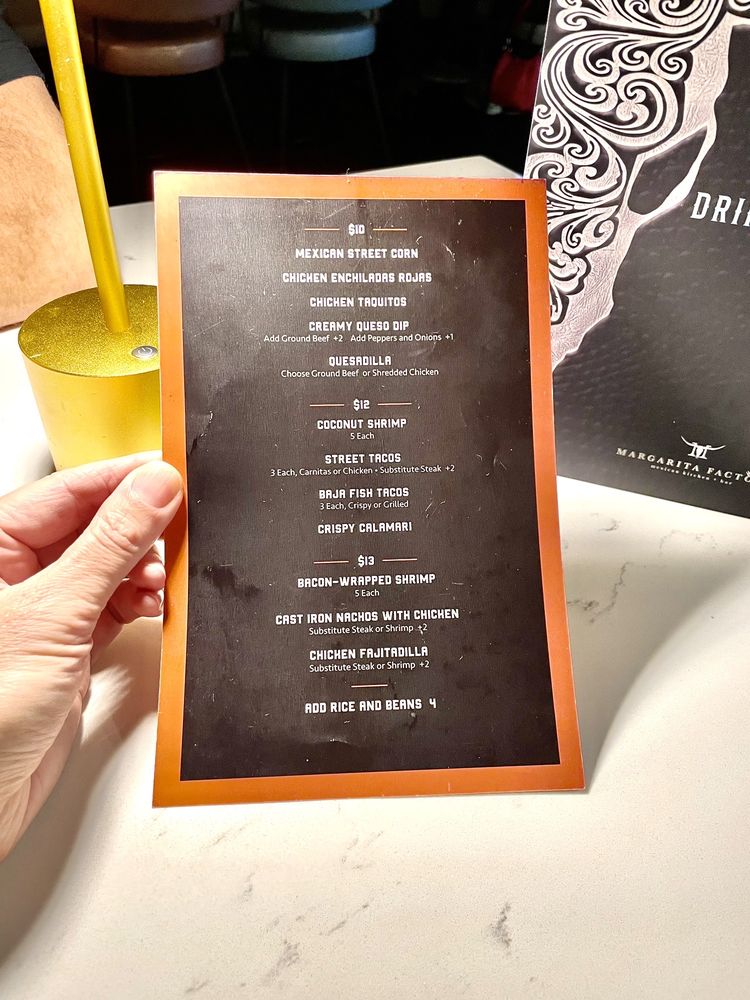 $10
MEXICAN STREET CORN
CHICKEN ENCHILADAS ROJAS
CHICKEN TAQUITOS
CREAMY QUESO DIP
Add Ground Beef +2 Add Peppers and Onions +1
QUESADILLA
Choose Ground Beef or Shredded Chicken
$12
COCONUT SHRIMP
5 Each
STREET TACOS
3 Each, Carnitas or Chicken • Substitute Steak +2
BAJA FISH TACOS
3 Each, Crispy or Grilled
CRISPY CALAMARI
$13
BACON-WRAPPED SHRIMP
5 Each
CAST IRON NACHOS WITH CHICKEN
Substitute Steak or Shrimp +2
CHICKEN FAJITADILLA
Substitute Steak or Shrimp +2
ADD RICE AND BEANS 4
DRI
MARGARITA FACTO
mexican kitchen • bar